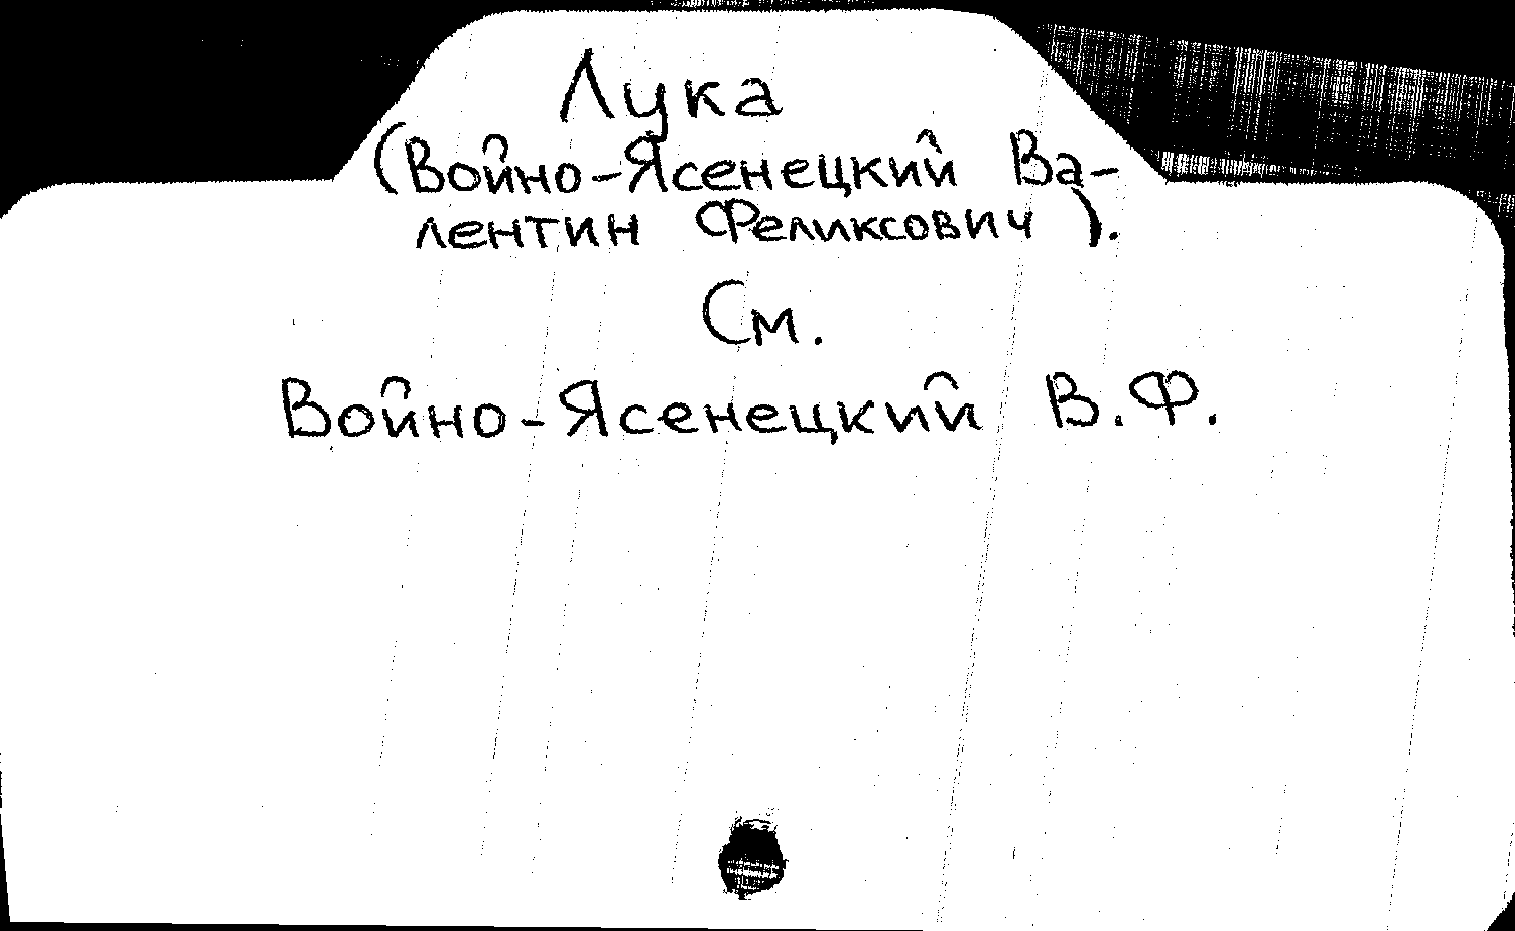 Лука
(Войно-Ясенецкий Ва-
лентин Феликсович).
См.
Войно-Ясенецкий В.Ф.